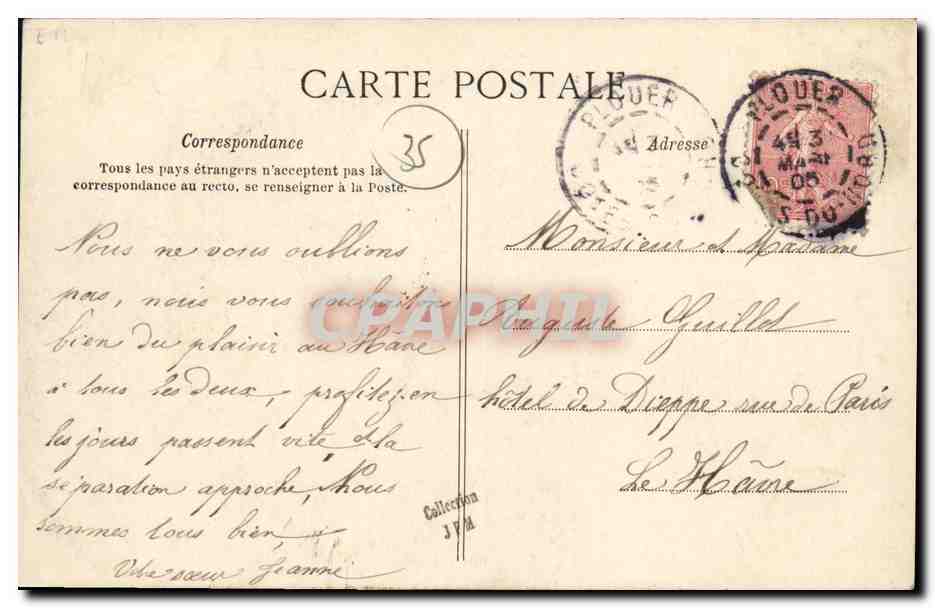 CARTE POSTALE
Correspondance
Tous les pays étrangers n'acceptent pas la
correspondance au recto, se renseigner à la Poste.
35
Nous ne vous oublions
pas, nous vous souhaitons
bien du plaisir au Havre
à tous les deux, profitez-en
les jours passent vite, et la
séparation approche, Nous
sommes tous bien,
Votre sœur Jeanne
PLOUER
Adresse
PLOUER
3
MAI
05
C. DU-NORD
Monsieur et Madame
Auguste Guillot
hôtel de Dieppe rue de Paris
Le Hâvre
CPAPHIL
Collection
JFM